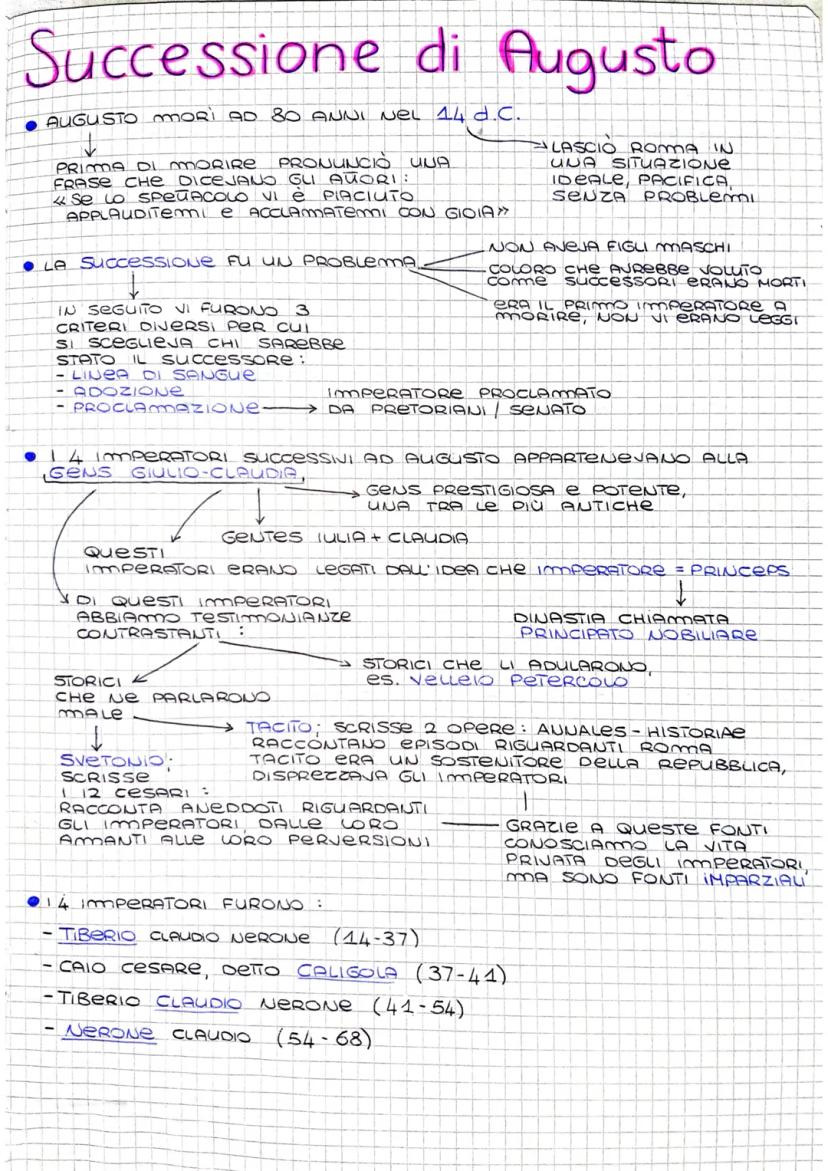 Successione di Augusto
• AUGUSTO MORÌ AD 80 ANNI NEL 14 d.C.
PRIMA DI MORIRE PRONUNCIÒ UNA
FRASE CHE DICEVANO GLI ATTORI:
«SE LO SPETTACOLO VI È PIACIUTO
APPLAUDITEMI E ACCLAMATEMI CON GIOIA»
LASCIÒ ROMA IN
UNA SITUAZIONE
IDEALE, PACIFICA,
SENZA PROBLEMI
• LA SUCCESSIONE FU UN PROBLEMA
NON AVEVA FIGLI MASCHI
COLORO CHE AVREBBE VOLUTO
COME SUCCESSORI ERANO MORTI
ERA IL PRIMO IMPERATORE A
MORIRE, NON VI ERANO LEGGI
IN SEGUITO VI FURONO 3
CRITERI DIVERSI PER CUI
SI SCEGLIEVA CHI SAREBBE
STATO IL SUCCESSORE:
- LINEA DI SANGUE
- ADOZIONE
- PROCLAMAZIONE → IMPERATORE PROCLAMATO
DA PRETORIANI / SENATO
• I 4 IMPERATORI SUCCESSIVI AD AUGUSTO APPARTENEVANO ALLA
GENS GIULIO-CLAUDIA,
GENS PRESTIGIOSA E POTENTE,
UNA TRA LE PIÙ ANTICHE
GENTES IULIA + CLAUDIA
QUESTI
IMPERATORI ERANO LEGATI DALL'IDEA CHE IMPERATORE = PRINCEPS
DINASTIA CHIAMATA
PRINCIPATO NOBILIARE
DI QUESTI IMPERATORI
ABBIAMO TESTIMONIANZE
CONTRASTANTI :
STORICI CHE LI ADULARONO,
ES. VELLEIO PETERCOLO
STORICI
CHE NE PARLARONO
MALE
TACITO; SCRISSE 2 OPERE: ANNALES - HISTORIAE
RACCONTANO EPISODI RIGUARDANTI ROMA
TACITO ERA UN SOSTENITORE DELLA REPUBBLICA,
DISPREZZAVA GLI IMPERATORI
SVETONIO;
SCRISSE
I 12 CESARI :
RACCONTA ANEDDOTI RIGUARDANTI
GLI IMPERATORI, DALLE LORO
AMANTI ALLE LORO PERVERSIONI
GRAZIE A QUESTE FONTI
CONOSCIAMO LA VITA
PRIVATA DEGLI IMPERATORI,
MA SONO FONTI IMPARZIALI
• I 4 IMPERATORI FURONO :
- TIBERIO CLAUDIO NERONE (14-37)
- CAIO CESARE, DETTO CALIGOLA (37-41)
- TIBERIO CLAUDIO NERONE (41-54)
- NERONE CLAUDIO (54-68)